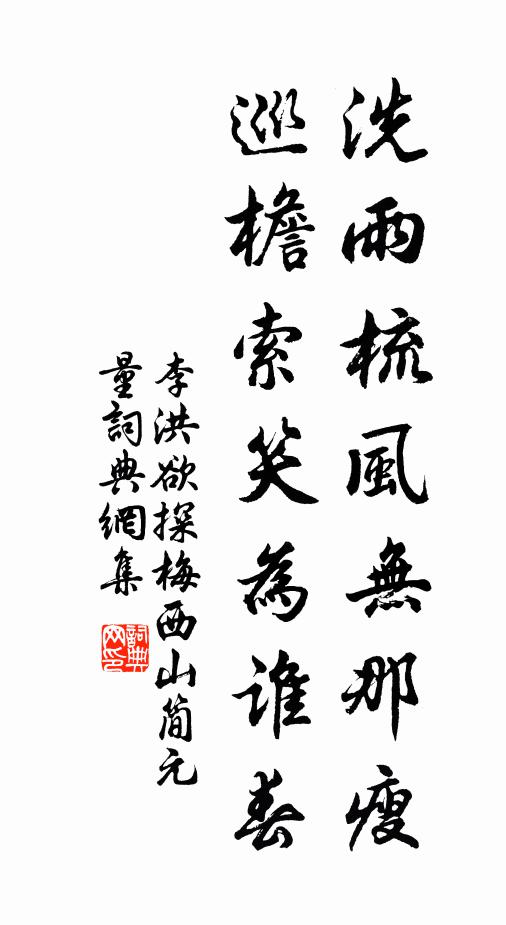 洗雨梳風無那瘦
巡檐索笑為誰春
李洪欲探梅西山簡元
量詞典網集
詞典
网印